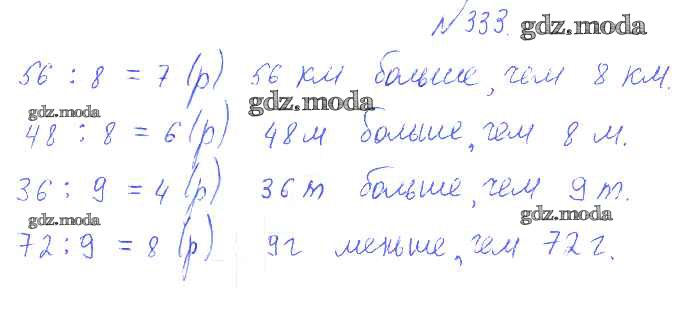 №333. gdz.moda
56 : 8 = 7 (р) 56 км больше, чем 8 км.
gdz.moda gdz.moda
48 : 8 = 6 (р) 48 м больше, чем 8 м.
36 : 9 = 4 (р) 36 т больше, чем 9 т.
gdz.moda gdz.moda
72 : 9 = 8 (р) 9 г меньше, чем 72 г.